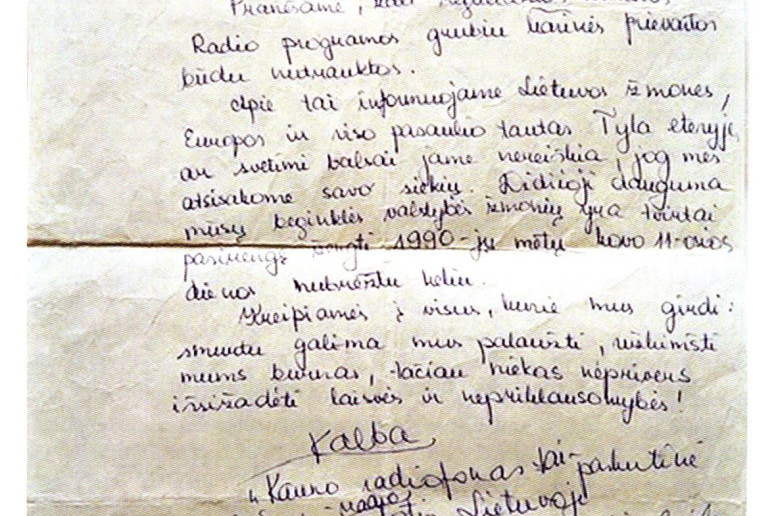 Pranešame, kad
Radio programos grubiu karinės prievartos
būdu nutrauktos.
Apie tai informuojame Lietuvos žmones,
Europos ir viso pasaulio tautas. Tyla eteryje
ar svetimi balsai jame nereiškia, jog mes
atsisakome savo siekių. Didžioji dauguma
mūsų beginklės valstybės žmonių yra tvirtai
pasirengę žengti 1990-jų metų kovo 11-osios
dienos nubrėžtu keliu.
Kreipiamės į visus, kurie mus girdi:
smurtu galima mus palaužti, užkimšti
mums burnas, tačiau niekas neprivers
išsižadėti laisvės ir nepriklausomybės!
Kalba
"Kauno radiofonas tai paskutinė
radio Lietuvoje